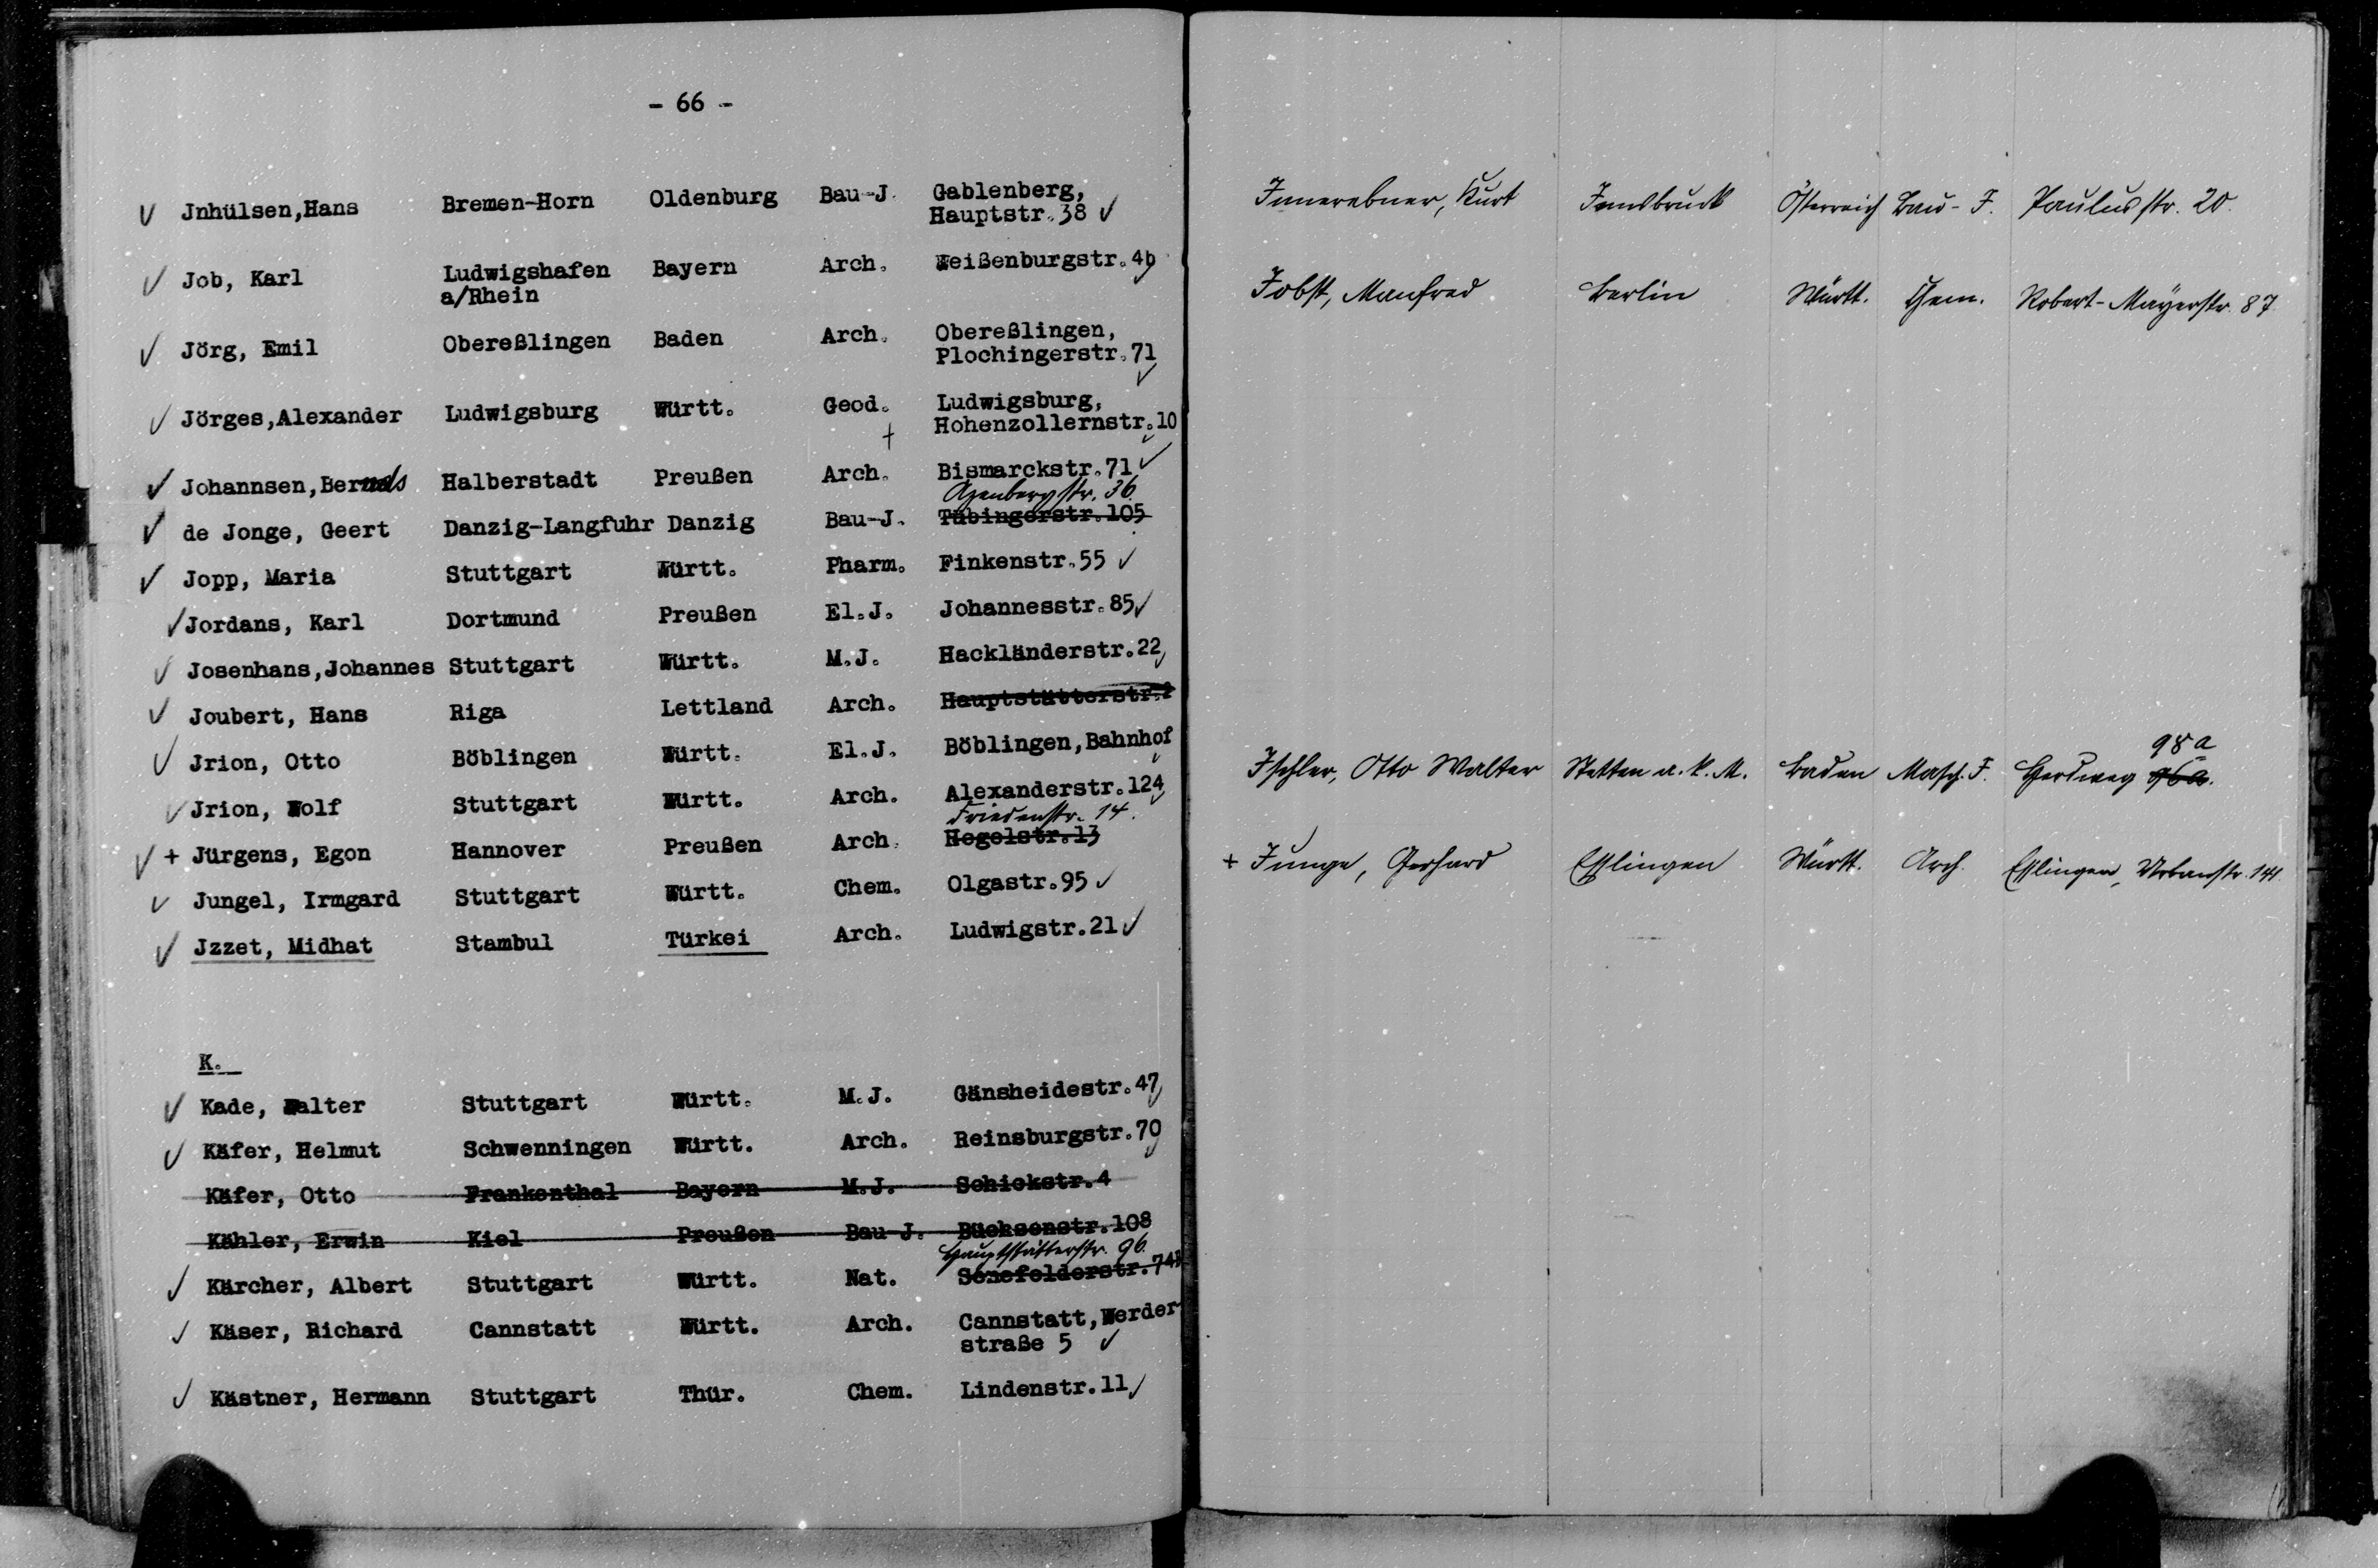 - 66 -
Jnhülsen,Hans Bremen-Horn Oldenburg Bau-J. Gablenberg,
Hauptstr.38
Job, Karl Ludwigshafen Bayern Arch. Weißenburgstr.4b
a/Rhein
Jörg, Emil Obereßlingen Baden Arch. Obereßlingen,
Plochingerstr.71
Jörges,Alexander Ludwigsburg Württ. Geod. Ludwigsburg,
Hohenzollernstr.10
Johannsen, Halberstadt Preußen Arch. Bismarckstr.71
Azenbergstr. 36.
de Jonge, Geert Danzig-Langfuhr Danzig Bau-J. Tübingerstr.105
Jopp, Maria Stuttgart Württ. Pharm. Finkenstr.55
Jordans, Karl Dortmund Preußen El.J. Johannesstr.85
Josenhans,Johannes Stuttgart Württ. M.J. Hackländerstr.22
Joubert, Hans Riga Lettland Arch. Hauptstätterstr.
Jrion, Otto Böblingen Württ. El.J. Böblingen,Bahnhof
Jrion, Wolf Stuttgart Württ. Arch. Alexanderstr.124
Friedenstr. 14.
+ Jürgens, Egon Hannover Preußen Arch. Hegelstr.13
Jungel, Irmgard Stuttgart Württ. Chem. Olgastr.95
Jzzet, Midhat Stambul Türkei Arch. Ludwigstr.21
K.
Kade, Walter Stuttgart Württ. M.J. Gänsheidestr.47
Käfer, Helmut Schwenningen Württ. Arch. Reinsburgstr.70
Käfer, Otto Frankenthal Bayern M.J. Schickstr.4
Kähler, Erwin Kiel Preußen Bau J. Büchsenstr.108
Hauptstätterstr. 96.
Kärcher, Albert Stuttgart Württ. Nat. Senefelderstr.
Käser, Richard Cannstatt Württ. Arch. Cannstatt,Werder-
straße 5
Kästner, Hermann Stuttgart Thür. Chem. Lindenstr.11
Innerebner, Kurt Innsbruck Österreich Bau-I. Paulusstr. 20.
Jobst, Manfred Berlin Württ. Chem. Robert-Mayerstr. 87.
98a
Ischler, Otto Walter Stetten a. k. M. Baden Masch.I. Herdweg 96a.
+ Junge, Gerhard Esslingen Württ. Arch. Esslingen, Urbanstr. 144.